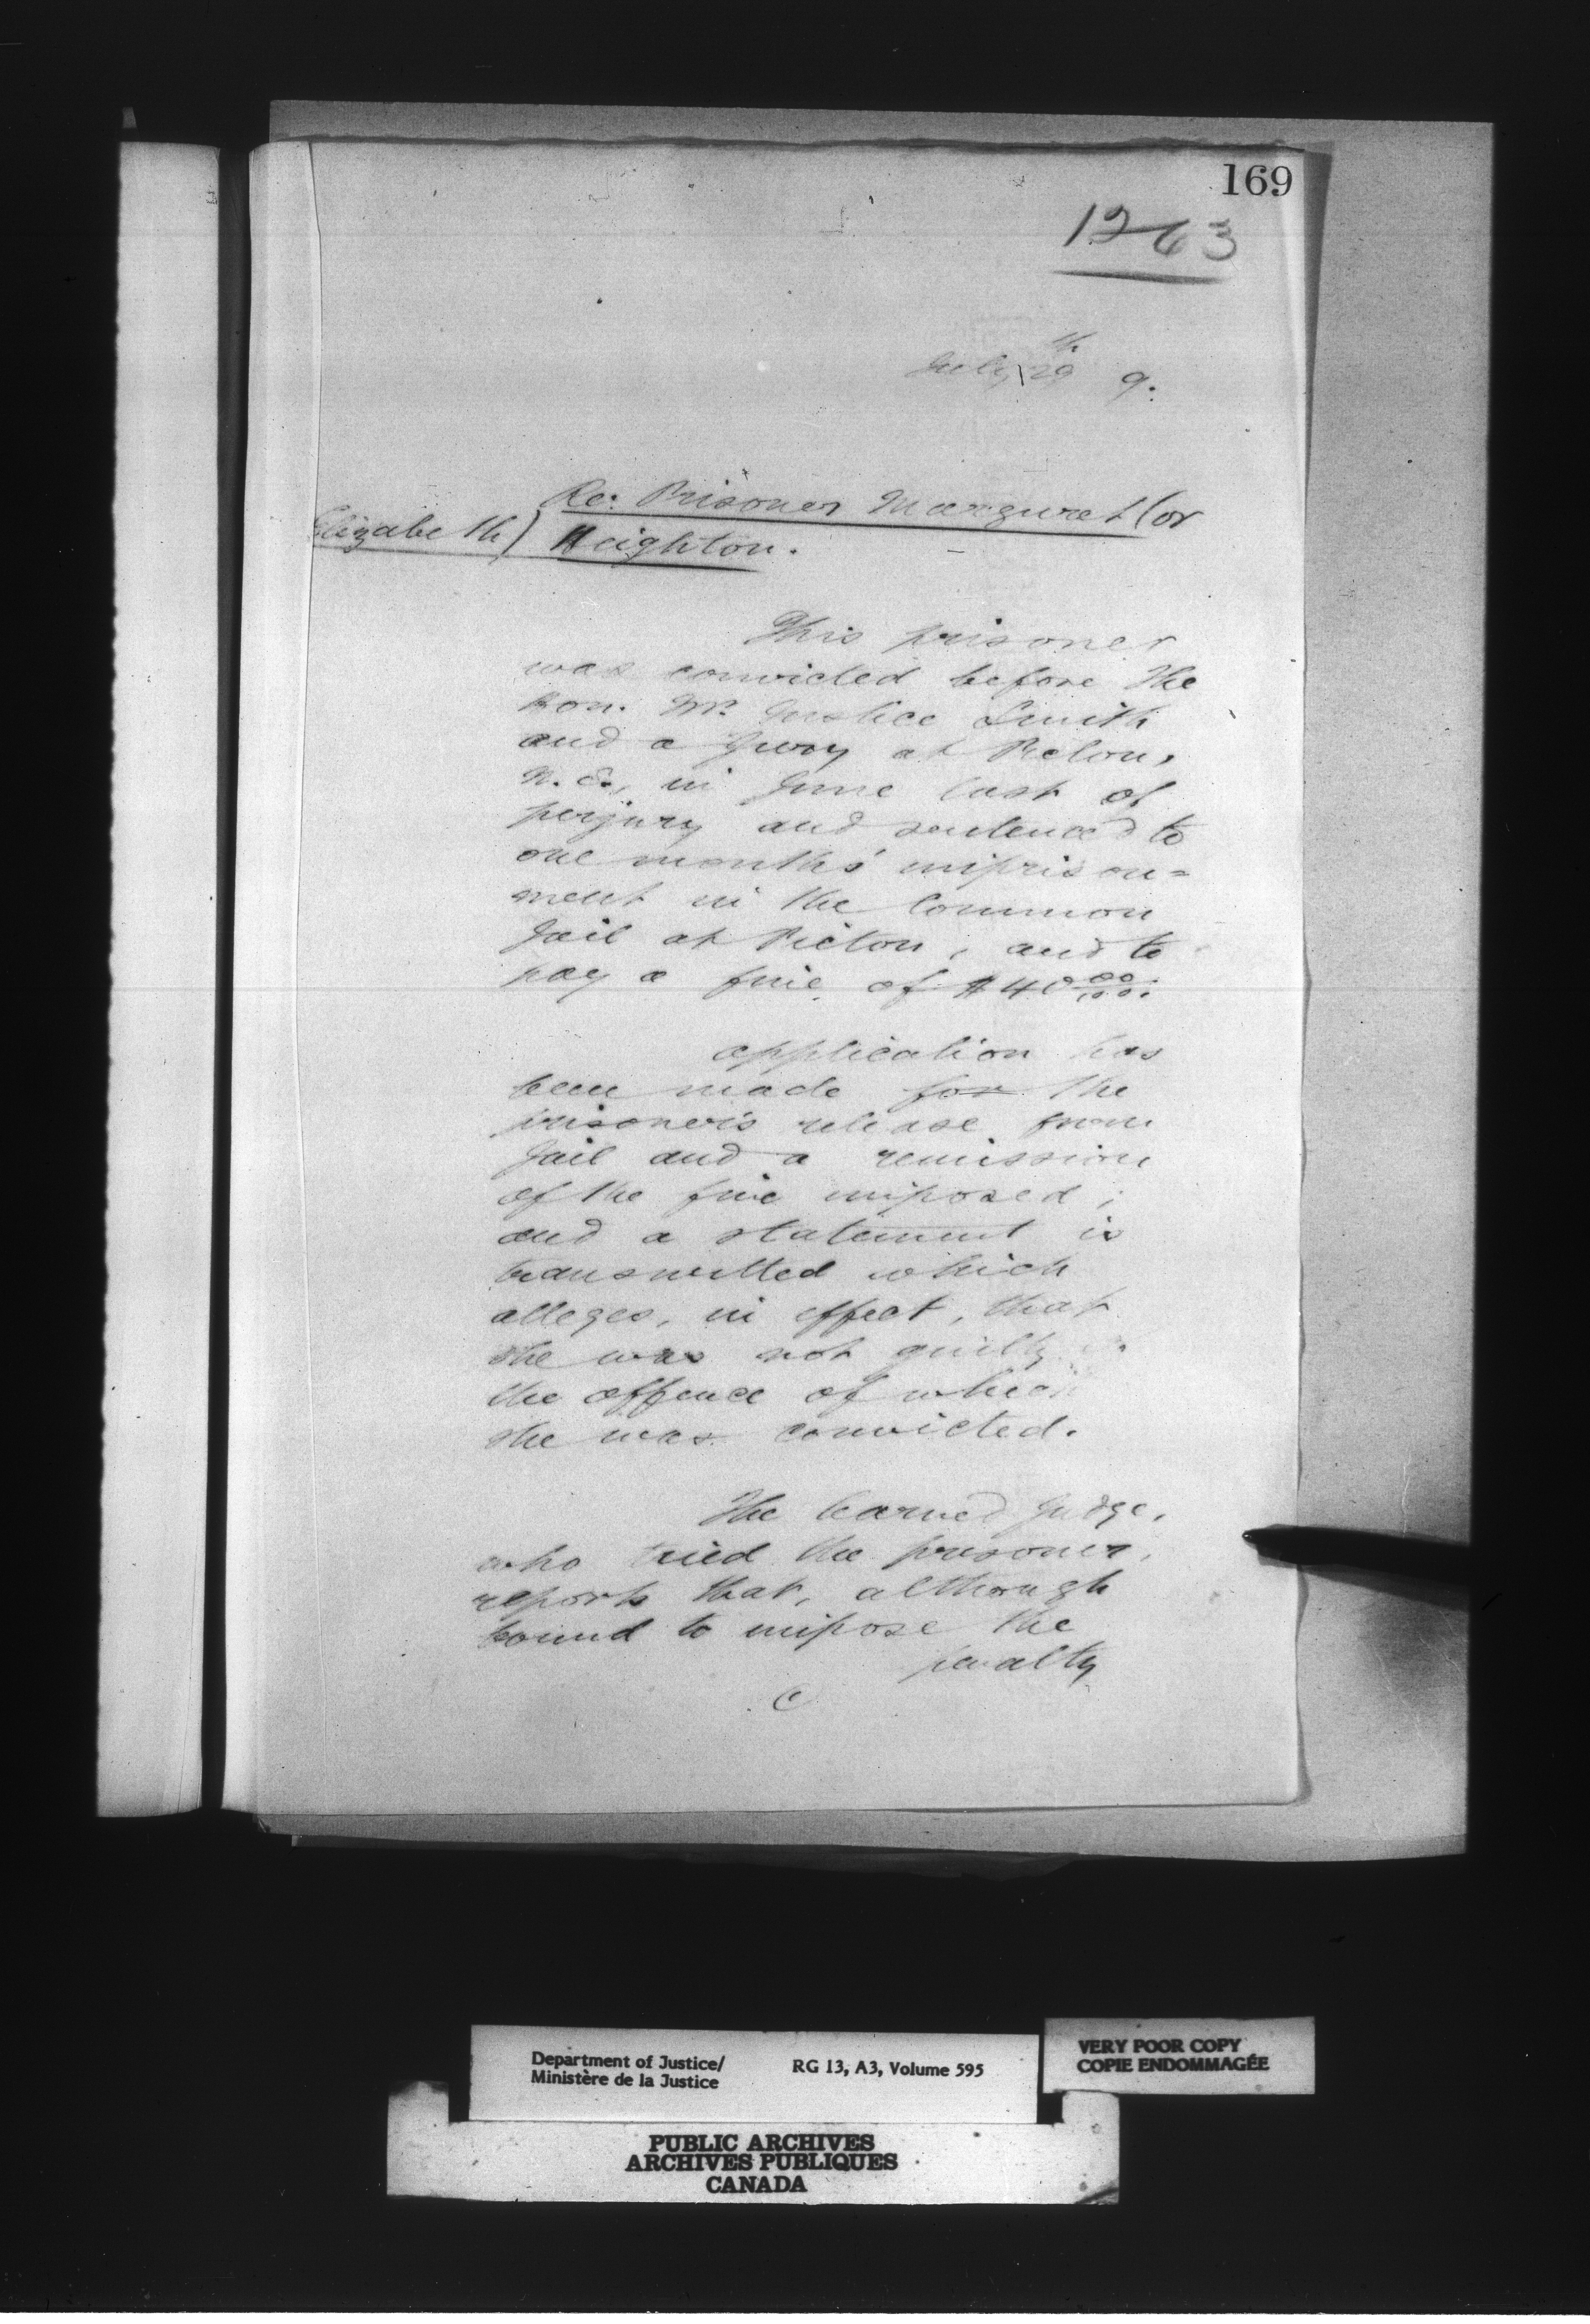 169
1263
July 29th 9.
Re: Prisoner Margaret (or
Elizabeth) Heighton.
This prisoner
was convicted before the
Hon. Mr. Justice Smith
and a Jury at Pictou,
N.S., in June last of
perjury and sentenced to
one months' imprison=
ment in the Common
Jail at Pictou, and to
pay a fine of $40 00/100.
Application has
been made for the
prisoner's release from
Jail and a remission
of the fine imposed;
and a statement is
transmitted which
alleges, in effect, that
she was not guilty of
the offence of which
she was convicted.
The learned Judge,
who tried the prisoner,
reports that, although
bound to impose the
penalty
Department of Justice/
Ministère de la Justice
RG 13, A3, Volume 595
VERY POOR COPY
COPIE ENDOMMAGÉE
PUBLIC ARCHIVES
ARCHIVES PUBLIQUES
CANADA